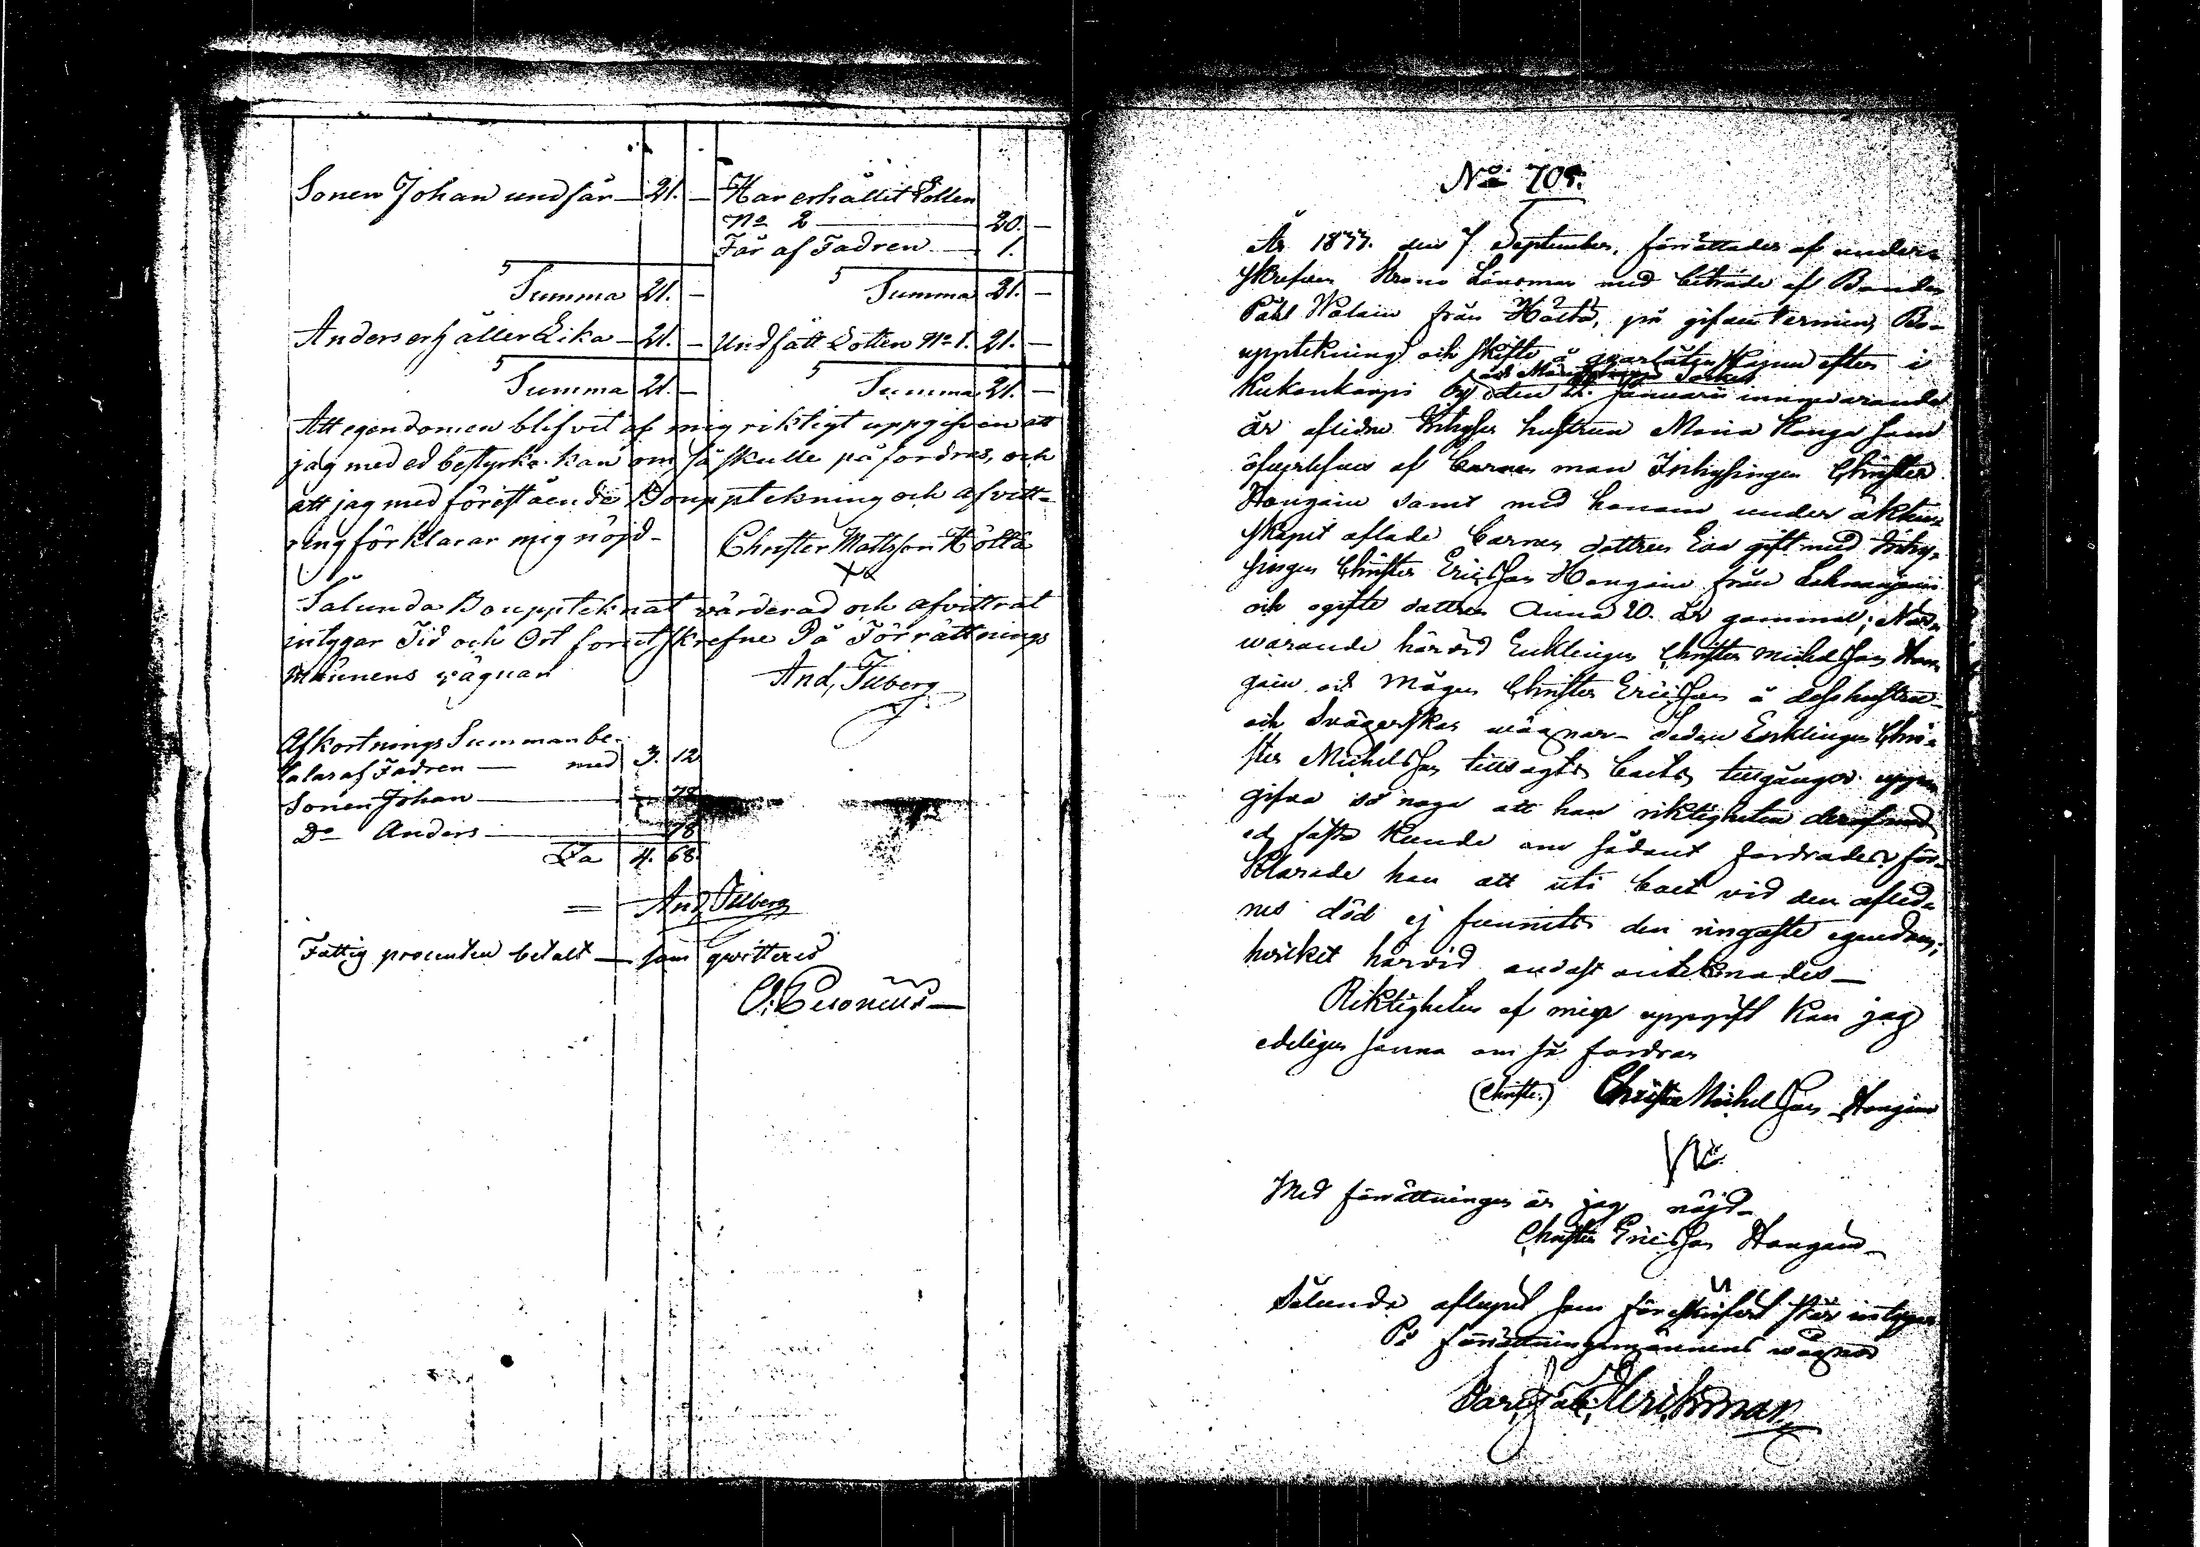 Sonen Johan undfår — 21. — Har erhållit Lotten
No 2 — 20. —
Får af Fadren — 1.
Summa 21. — Summa 21. —
Anders erhåller Lika — 21. — Undfått Lotten No 1. 21. —
Summa 21. — Summa 21. —
Att egendomen blifvit af mig riktigt uppgifven att
jag med ed bestyrka kan om så skulle påfordras, och
att jag med föreståënde Bouppteckning och afvitt-
ring förklarar mig nöjd-
Christer Mattsson Höltä
Sålunda Bouppteknat värderad och afvittrat
intygar Tid och Ort förutskrefne På Förrättnings
männens vägnar
And, Tilberg
Afkortnings Summan be-
talas af Fadren — med 3. 12
Sonen Johan — 78
Do Anders — 78
Sa 4. 68.
And, Tilberg
Fattig procenten betalt — som qvitteras
No 705.
År 1833. den 7 September, förrättades af under-
skrefven Krono Länsman med biträde af Bonden
Påhl från Höltä, på gifven termin, Bo-
uppteckning och skifte å qvarlåtenskapen efter i
Kukonharju by den 22. Januarii innevarande
år aflidne Inhyses hustrun Maria Konga som
öfverlefves af barnen man Inhysingen Christer
Hongain samt med honom under äkten-
skapet aflade barnen, dottren Eva gift med Inhy-
singen Christer Ericsson Hongain från
och ogifte dottren Anna 20. år gammal; När-
warande härvid Enklingen Christer Michelsson Hon-
gain och Mågen Christer Ericsson å dess hustrus
och Svägerskas vägnar - Sedan Enklingen Chri-
ster Michelsson tillsagts boets tillgångar upp-
gifva så noga att han riktigheten deraf med
ed fästa kunde om sådant fordrades, för-
klarade han att uti boet vid den aflid-
nes död ej funnits den ringaste egendom;
hvilket härvid endast antecknades —
Riktigheten af min uppgift kan jag
edeligen sanna om så fordras
(Christe.) Christer Michelsson Hongain
Med förrättningen är jag nöjd-
Christer Ericsson Hongain
Sålunda aflupit som föreskrifvet står intygar
På förrättningsmännens vägnar